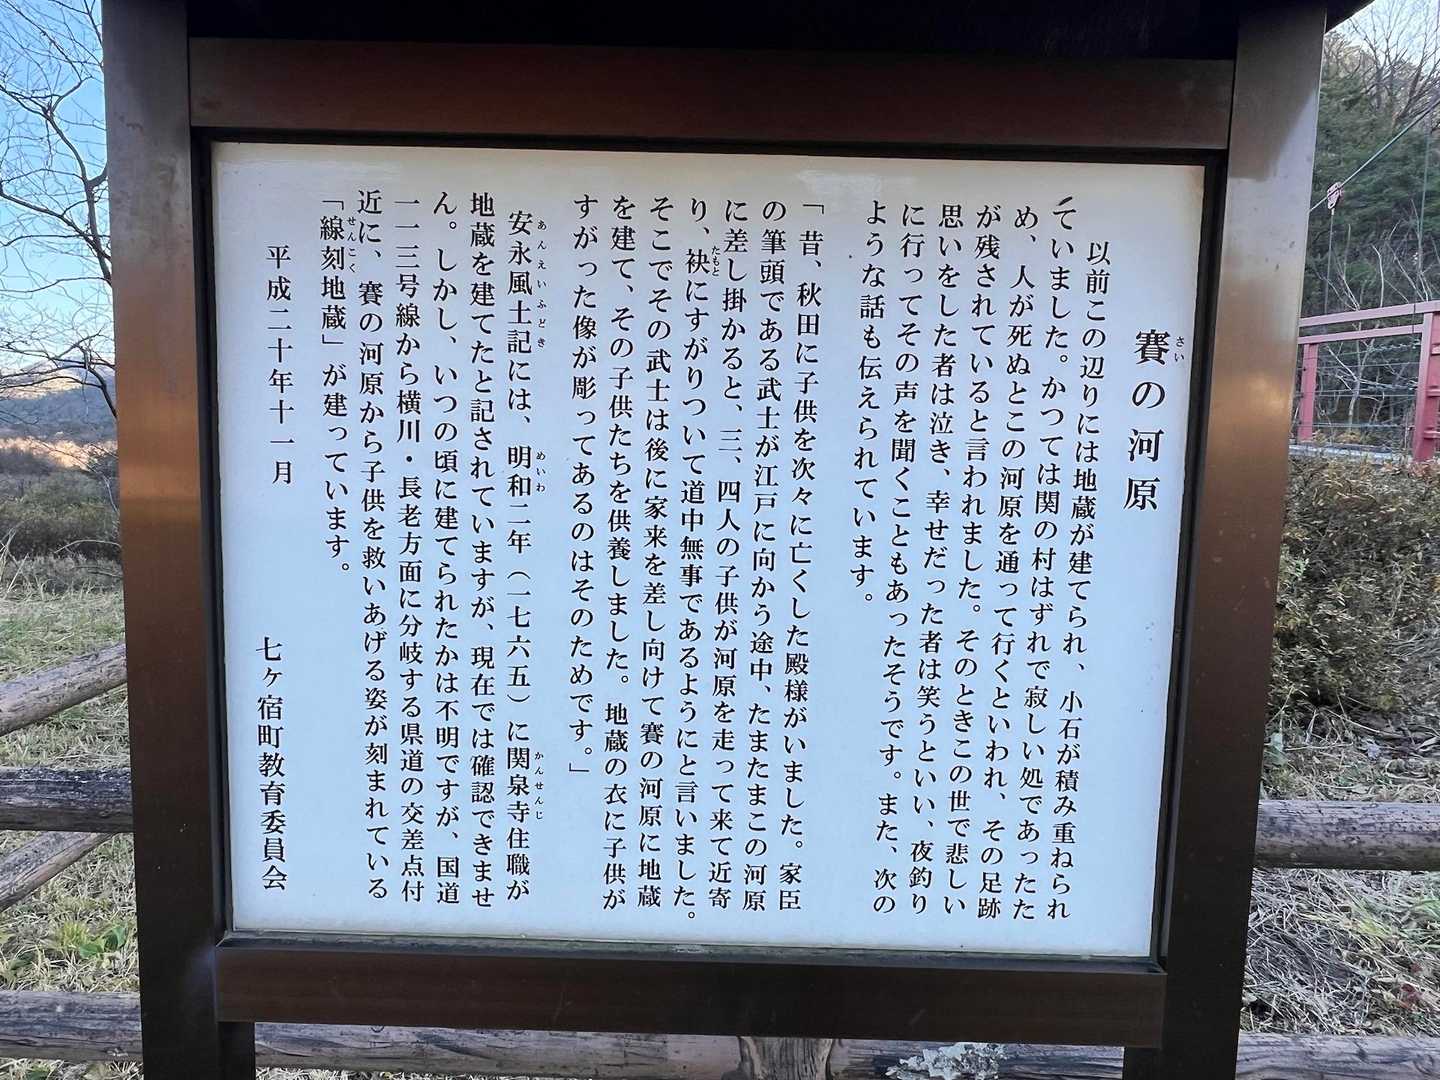 賽の河原
さい
以前この辺りには地蔵が建てられ、小石が積み重ねられ
ていました。かつては関の村はずれで寂しい処であったた
め、人が死ぬとこの河原を通って行くといわれ、その足跡
が残されていると言われました。そのときこの世で悲しい
思いをした者は泣き、幸せだった者は笑うといい、夜釣り
に行ってその声を聞くこともあったそうです。また、次の
ような話も伝えられています。
「昔、秋田に子供を次々に亡くした殿様がいました。家臣
の筆頭である武士が江戸に向かう途中、たまたまこの河原
に差し掛かると、三、四人の子供が河原を走って来て近寄
り、袂にすがりついて道中無事であるようにと言いました。
たもと
そこでその武士は後に家来を差し向けて賽の河原に地蔵
を建て、その子供たちを供養しました。地蔵の衣に子供が
すがった像が彫ってあるのはそのためです。」
安永風土記には、明和二年（一七六五）に関泉寺住職が
あんえいふどき めいわ かんせんじ
地蔵を建てたと記されていますが、現在では確認できませ
ん。しかし、いつの頃に建てられたかは不明ですが、国道
一一三号線から横川・長老方面に分岐する県道の交差点付
近に、賽の河原から子供を救いあげる姿が刻まれている
「線刻地蔵」が建っています。
せんこく
平成二十年十一月
七ヶ宿町教育委員会